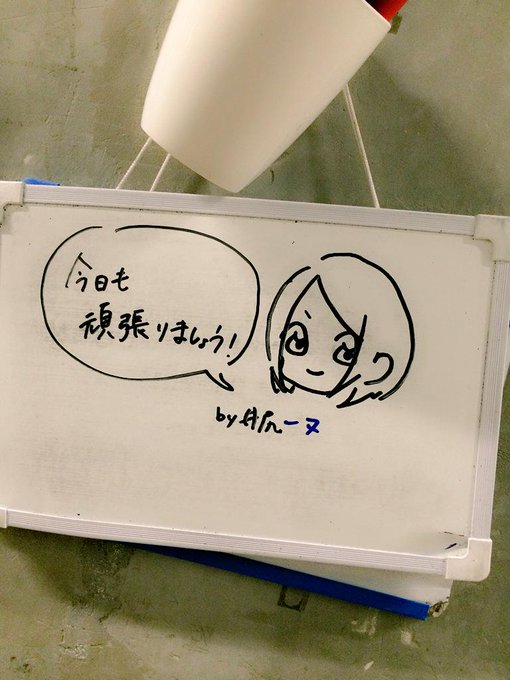 今日も
頑張りましょう!
by井戸ルーヌ